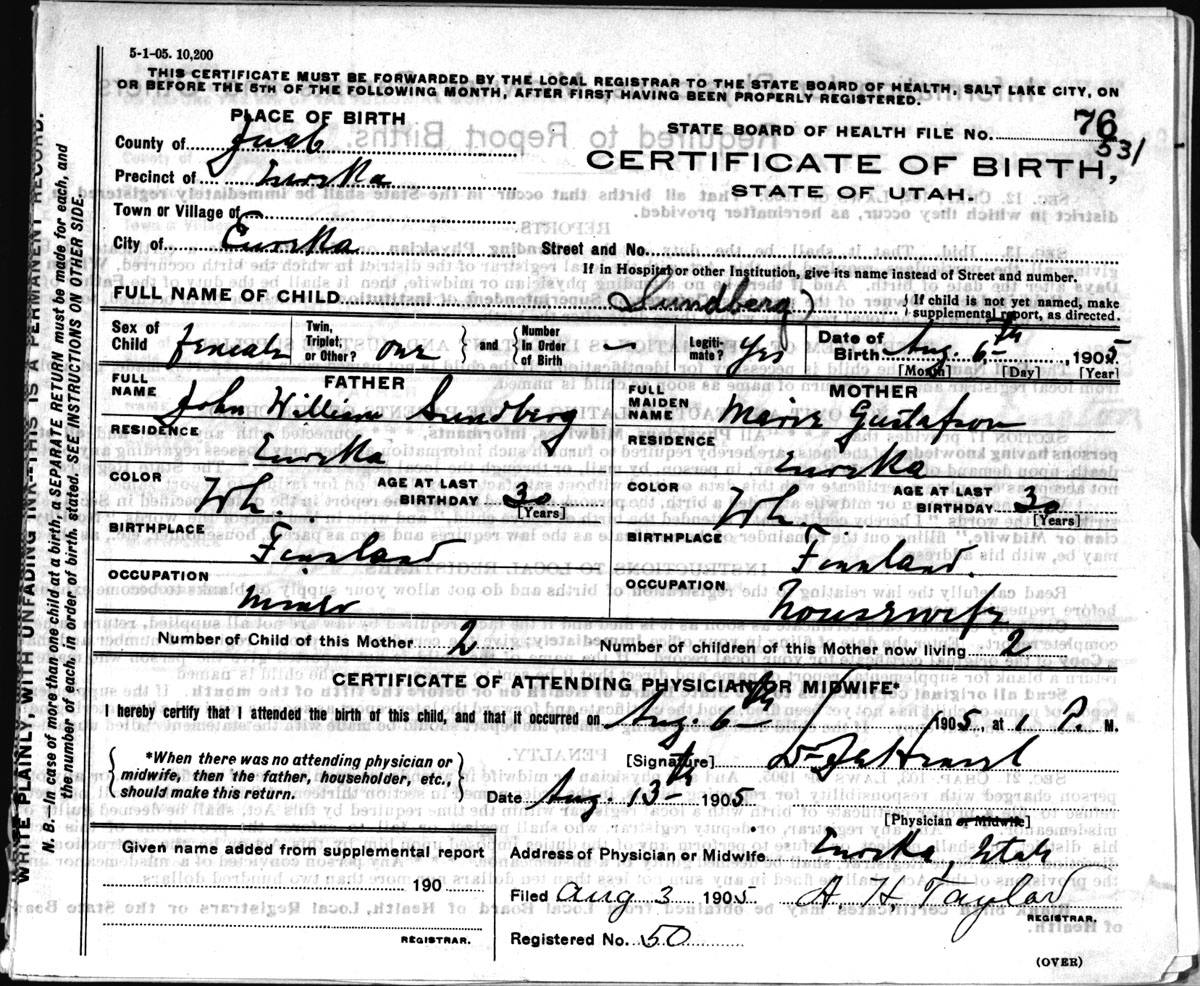 5-1-05. 10,200
THIS CERTIFICATE MUST BE FORWARDED BY THE LOCAL REGISTRAR TO THE STATE BOARD OF HEALTH, SALT LAKE CITY, ON
OR BEFORE THE 5TH OF THE FOLLOWING MONTH, AFTER FIRST HAVING BEEN PROPERLY REGISTERED.
PLACE OF BIRTH
STATE BOARD OF HEALTH FILE No. 76
531
County of Juab
CERTIFICATE OF BIRTH,
Precinct of Eureka
STATE OF UTAH.
Town or Village of
City of Eureka Street and No.
If in Hospital or other Institution, give its name instead of Street and number.
FULL NAME OF CHILD Sundberg) } If child is not yet named, make supplemental report, as directed.
Sex of Child female Twin, Triplet, or Other? one } and { Number in Order of Birth — Legitimate? yes Date of Birth Aug. 6th, 1905
[Month] [Day] [Year]
FATHER
FULL NAME John William Sundberg
RESIDENCE
Eureka
COLOR Wh. AGE AT LAST BIRTHDAY 30
[Years]
BIRTHPLACE
Finnland
OCCUPATION
MOTHER
FULL MAIDEN NAME Gustafson
RESIDENCE
Eureka
COLOR Wh. AGE AT LAST BIRTHDAY 30
[Years]
BIRTHPLACE
Finnland.
OCCUPATION
housewife
Number of Child of this Mother 2 Number of children of this Mother now living 2
CERTIFICATE OF ATTENDING PHYSICIAN OR MIDWIFE*
I hereby certify that I attended the birth of this child, and that it occurred on Aug. 6th 1905 at 1 P. M.
{ *When there was no attending physician or midwife, then the father, householder, etc., should make this return. }
[Signature] Dr
Date Aug. 13th 1905
[Physician or Midwife]
Given name added from supplemental report
190
REGISTRAR.
Address of Physician or Midwife. Eureka, Utah
Filed Aug 3 1905 A. H. Taylor
REGISTRAR.
Registered No. 50
(OVER)
WRITE PLAINLY, WITH UNFADING INK--THIS IS A PERMANENT RECORD.
N. B.—In case of more than one child at a birth, a SEPARATE RETURN must be made for each, and
the number of each, in order of birth, stated. SEE INSTRUCTIONS ON OTHER SIDE.